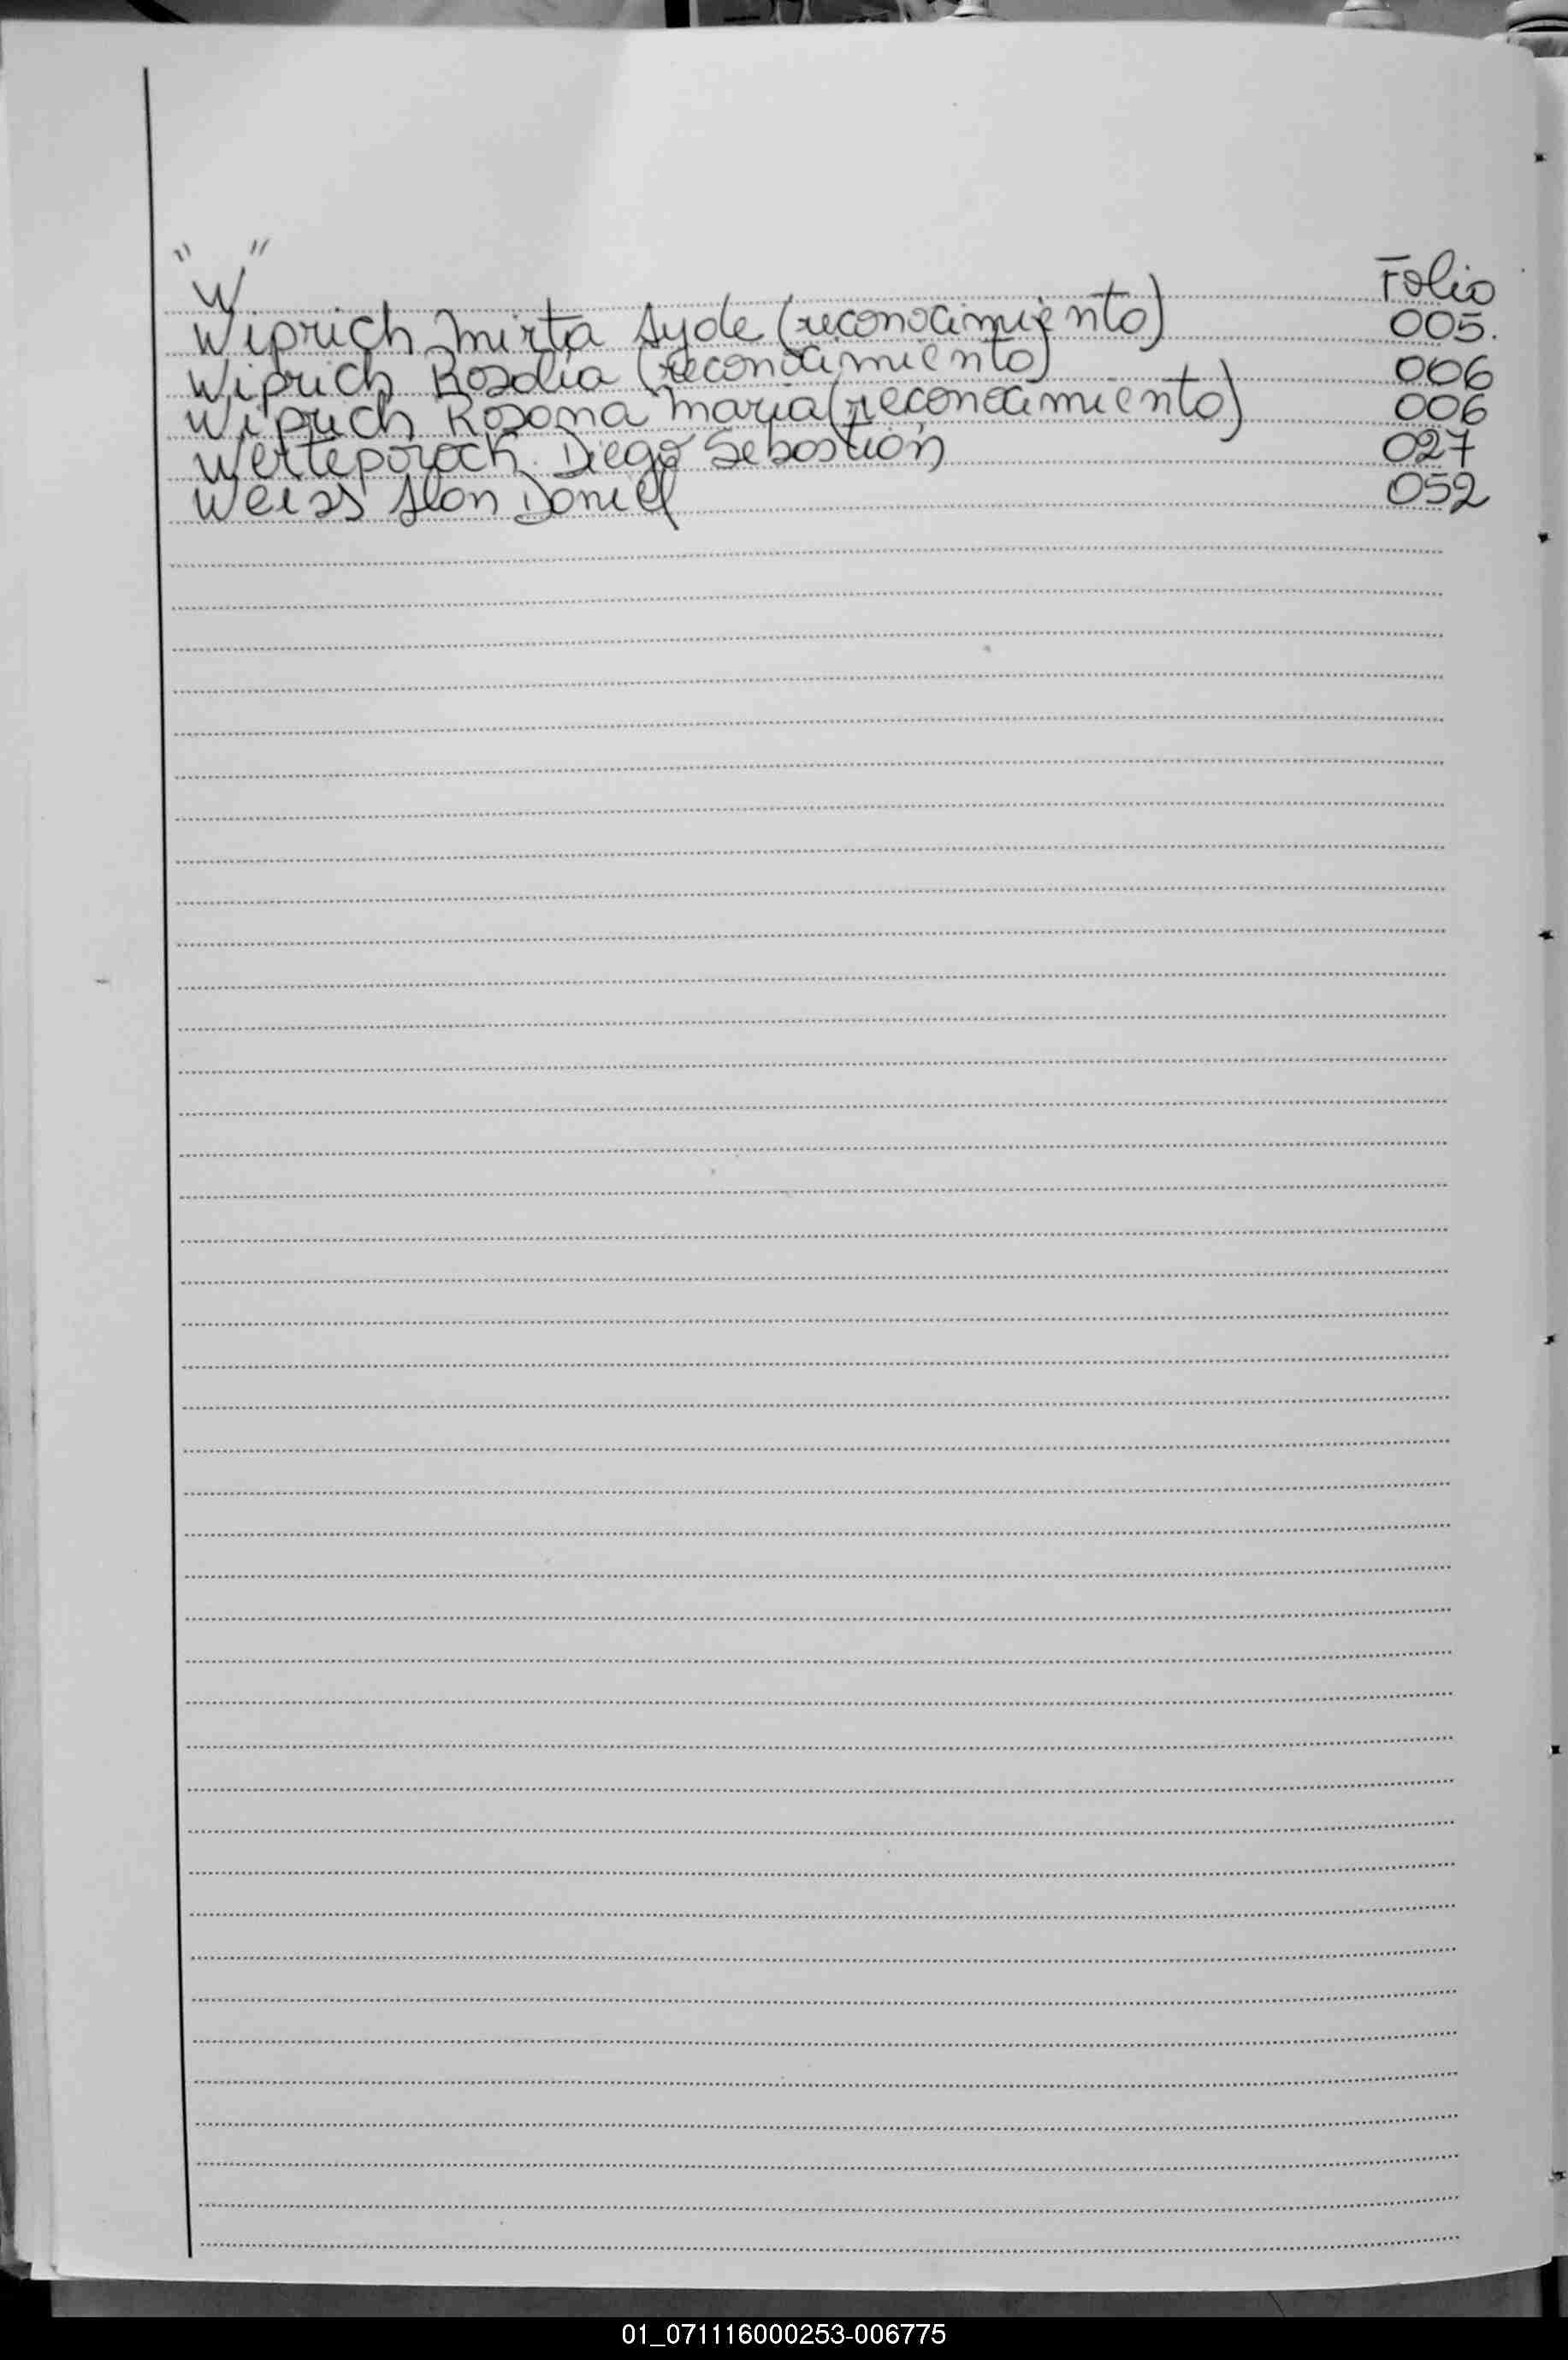 "W" Folio
Wiprich Mirta Ayde (reconocimiento) 005.
Wiprich Rosalia (reconocimiento) 006
Wiprich Rosana Maria (reconocimiento) 006
Werteparock Diego Sebastián 027
Weiss Alan Daniel 052
01_071116000253-006775